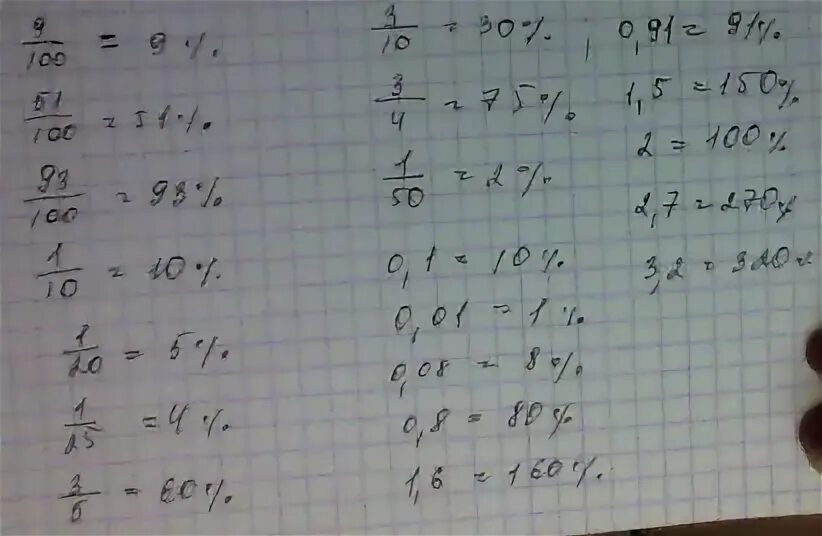 9/100 = 9 %
51/100 = 51%
93/100 = 93%
1/10 = 10%
1/20 = 5%
1/25 = 4%
3/5 = 60%
3/10 = 30%;
3/4 = 75%
1/50 = 2%
0,1 = 10%
0,01 = 1%
0,08 = 8%
0,8 = 80%
1,6 = 160%
0,91 = 91%
1,5 = 150%
2 = 100%
2,7 = 270%
3,2 = 320%